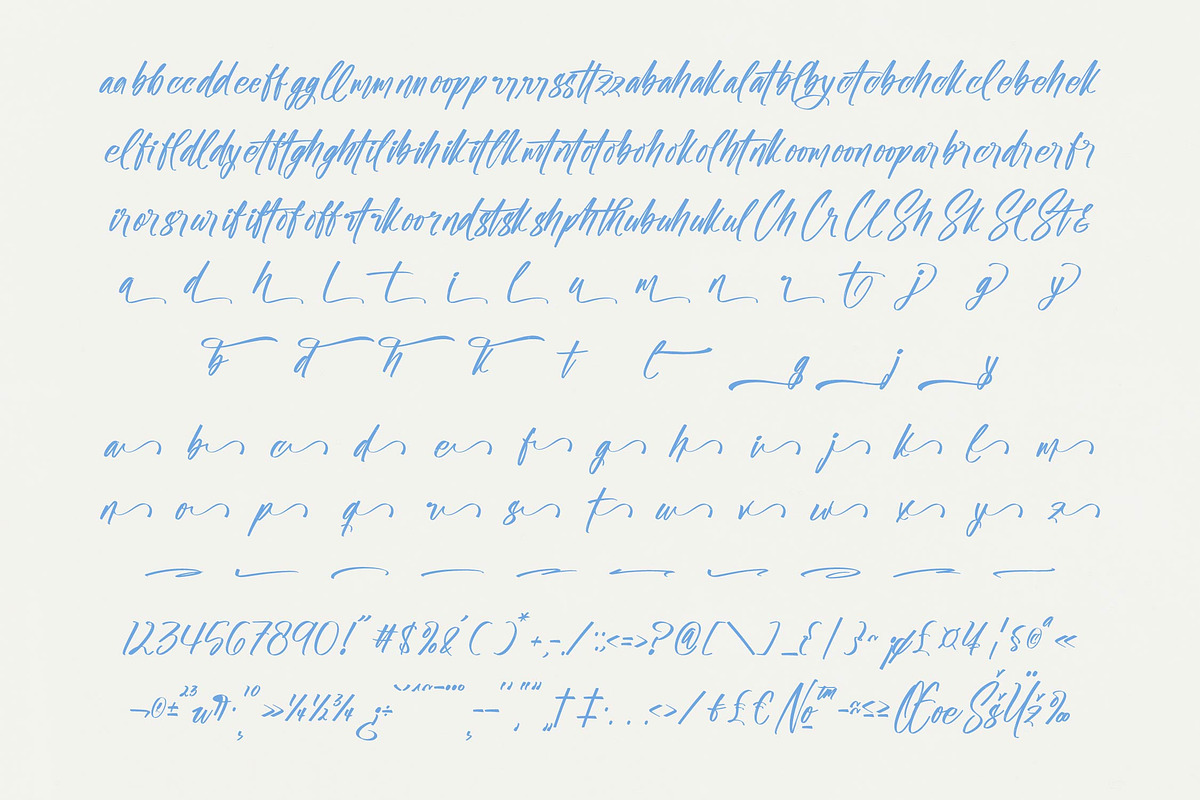 aabbccddeeffggllmmnnoopprrrrssttzzabahakalatblbyctcbchckclebehek
elfifldldyetftghghtilibihikitlkmtntotobohokolhtnkoomoonooparbrcrdrerfr
irorsrurififtofoffrtrkoorndstskshphthubuhukulChCrClShSkSlSt&
a d h l t i l u m n r t j g y
b d h k t t g j y
a b c d e f g h i j k l m
n o p q r s t u v w x y z
1234567890!"#$%&'()*+,-./:;<=>?@[\]_{|}~
¬®±²³µ¶·¸¹º»¼½¾¿÷ †‡ <>/ €№™ −≈≤≥ ŒœŠšŸž‰